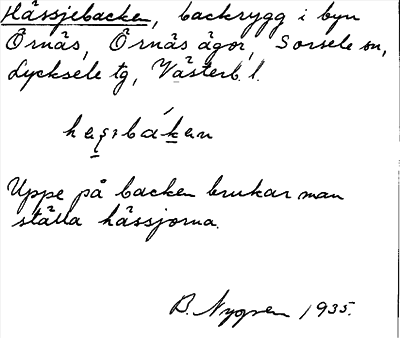 Hässjebacken, backrygg i byn
Örnäs, Örnäs ägor, Sorsele sn,
Lycksele tg, Västerb. l.
Uppe på backen brukar man
ställa hässjorna.
B. Nygren 1935.